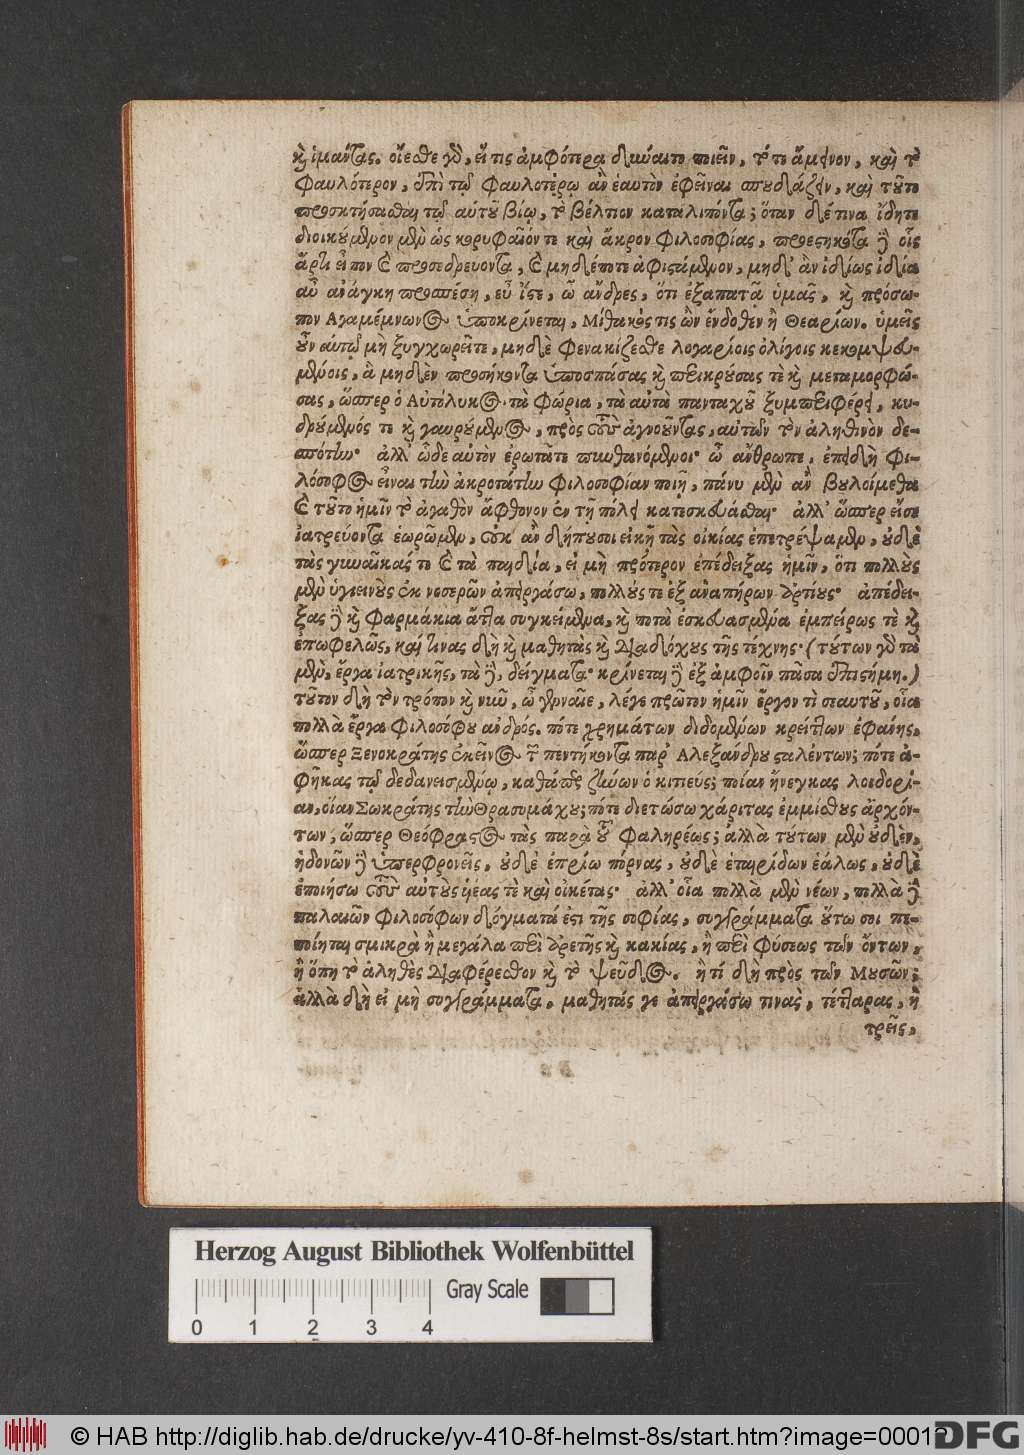 καὶ ἱμάντας. οἴεσθε γὸ, εἴ τις ἀμφότερα δύναιτο ποιεῖν, τό τε ἄμεινον, καὶ τὸ
φαυλότερον, ἐπὶ τῷ φαυλοτέρῳ ἂν ἑαυτὸν ἐφεῖναι σπουδάζειν, καὶ τοῦτο
προσκτήσασθαι τῷ αὑτοῦ βίῳ, τὸ βέλτιον καταλιπόντα; ὅταν δέ τινα ἴδητε
διοικούμενον μὲν ὡς κορυφαῖόν τε καὶ ἄκρον φιλοσοφίας, προεστηκότα δὲ οἷς
ἄρτι εἶπον καὶ προσεδρεύοντα, καὶ μηδέποτε ἀφιστάμενον, μηδ' ἂν ἰδίως ἰδία
αὖ ἀνάγκη προσπέση, εὖ ἴστε, ὦ ἄνδρες, ὅτι ἐξαπατᾷ ὑμᾶς, καὶ πρόσω-
πον Αγαμέμνονος ὑποκρίνεται, Μίθακός τις ὢν ἔνδοθεν ἢ Θεαρίων. ὑμεῖς
οὖν αὐτῷ μὴ ξυγχωρεῖτε, μηδὲ φενακίζεσθε λογαρίοις ὀλίγοις κεκομψευ-
μένοις, ἃ μηδὲν προσήκοντα ὑποσπάσας καὶ περικρούσας τὲ καὶ μεταμορφώ-
σας, ὥσπερ ὁ Αὐτόλυκος τὰ φώρια, τὰ αὐτὰ πανταχοῦ ξυμπεριφέρει, κυ-
δρούμενός τε καὶ γαυρούμενος, πρὸς τοὺς ἀγνοοῦντας, αὐτῶν τὸν ἀληθινὸν δε-
σπότην· ἀλλ' ὧδε αὐτὸν ἐρωτᾶτε πυνθανόμενοι· ὦ ἄνθρωπε, ἐπειδὴ φι-
λόσοφος εἶναι τὴν ἀκροτάτην φιλοσοφίαν ποιῇ, πάνυ μὲν ἂν βουλοίμεθα
καὶ τοῦτο ἡμῖν τὸ ἀγαθὸν ἄφθονον ἐν τῇ πόλει κατεσκευάσθαι· ἀλλ' ὥσπερ εἴ σε
ἰατρεύοντα ἑωρῶμεν, οὐκ ἂν δήπου σοι εἰκῇ τὰς οἰκίας ἐπετρέψαμεν, οὐδὲ
τὰς γυναῖκάς τε καὶ τὰ παιδία, εἰ μὴ πρότερον ἐπέδειξας ἡμῖν, ὅτι πολλοὺς
μὲν ὑγιεινοὺς ἐκ νοσερῶν ἀπειργάσω, πολλούς τε ἐξ ἀναπήρων ἀρτίους· ἀπέδει-
ξας δὲ καὶ φαρμάκια ἄττα συγκείμενα, καὶ ποτὰ ἐσκευασμένα ἐμπείρως τὲ καὶ
ἐπωφελῶς, καί τινας δὴ καὶ μαθητὰς καὶ διαδόχους τῆς τέχνης· (τούτων γὸ τὰ
μὲν, ἔργα ἰατρικῆς, τὰ δὲ, δείγματα· κρίνεται δὲ ἐξ ἀμφοῖν πᾶσα ἐπιστήμη.)
τοῦτον δὴ τὸν τρόπον καὶ νυῦ, ὦ γενναῖε, λέγε πρῶτον ἡμῖν ἔργον τὶ σεαυτοῦ, οἷα
πολλὰ ἔργα φιλοσόφου ἀνδρός. πότε χρημάτων διδομένων κρείττων ἐφάνης.
ὥσπερ Ξενοκράτης ἐκεῖνος τῶν πεντήκοντα παρ' Αλεξάνδρου ταλέντων; πότε ἀ-
φῆκας τῷ δεδανεισμένῳ, καθάπερ ζήνων ὁ κιτιεύς; ποίαν ἤνεγκας λοιδορί-
αν, οἵαν Σωκράτης τὴν Θρασυμάχου; πότε διετώσω χάριτας ἐμμίσθους ἀρχόν-
των, ὥσπερ Θεόφραστος τὰς παρὰ τοῦ φαληρέως; ἀλλὰ τούτων μὲν οὐδὲν,
ἡδονῶν δὲ ὑπερφρονεῖς, οὐδὲ ἐπρίω πόρνας, οὐδὲ ἑταιρίδων ἑάλως, οὐδὲ
ἐποιήσω τοὺς αὐτοὺς ὑιέας τὲ καὶ οἰκέτας· ἀλλ' οἷα πολλὰ μὲν νέων, πολλὰ δὲ
παλαιῶν φιλοσόφων δόγματά ἐστι τῆς σοφίας, συγγράμματα οὕτω σοι πε-
ποίηται σμικρὰ ἢ μεγάλα περὶ ἀρετῆς καὶ κακίας, ἢ περὶ φύσεως τῶν ὄντων,
ἢ ὅπη τὸ ἀληθὲς διαφέρεσθον καὶ τὸ ψεῦδος. ἢ τί δὴ πρὸς τῶν Μουσῶν;
ἀλλὰ δὴ εἰ μὴ συγγράμματα, μαθητάς γε ἀπειργάσω τινὰς, τέτταρας, ἢ
τρεῖς,
Herzog August Bibliothek Wolfenbüttel
Gray Scale
0 1 2 3 4
© HAB http://diglib.hab.de/drucke/yv-410-8f-helmst-8s/start.htm?image=00012
DFG